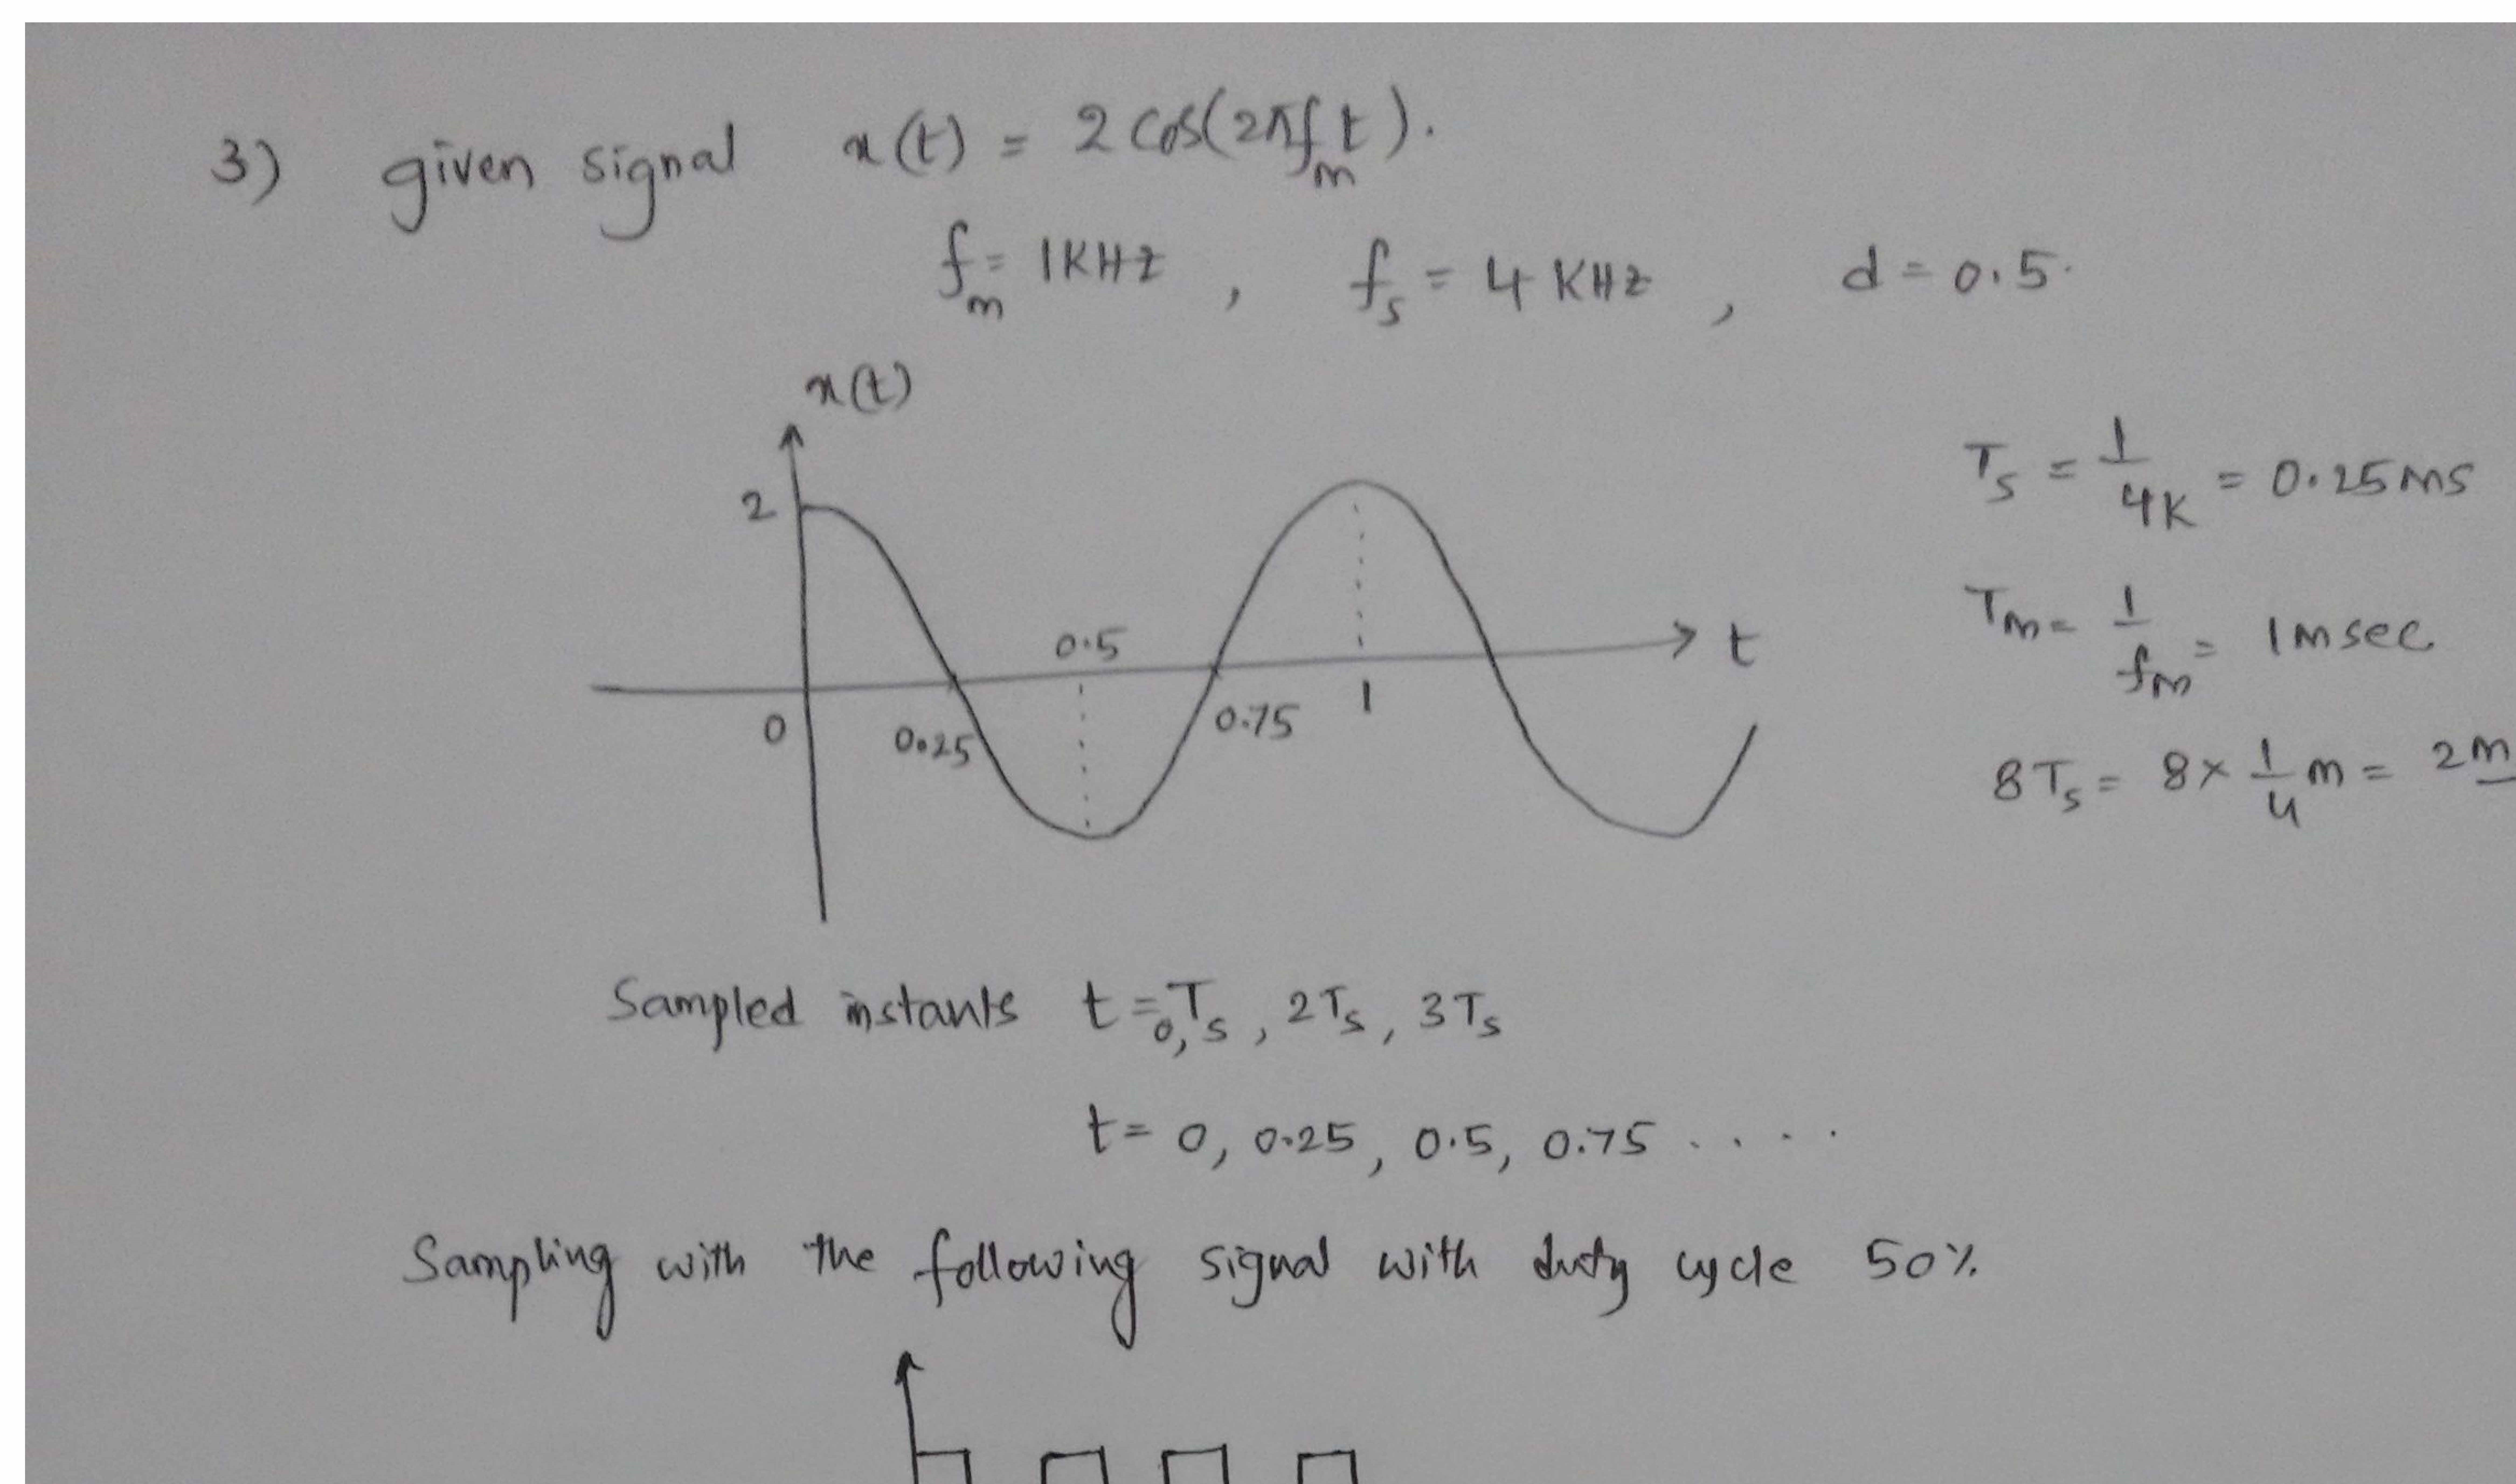 3) given signal x(t) = 2 cos(2πf_m t).
f_m = 1KHz , f_s = 4 KHz , d = 0.5.
x(t)
2
0.5
t
0
0.25
0.75
1
T_s = 1/4K = 0.25ms
T_m = 1/f_m = 1msec
8T_s = 8 × 1/4 m = 2m
Sampled instants t = 0, T_s, 2T_s, 3T_s
t = 0, 0.25, 0.5, 0.75 ....
Sampling with the following signal with duty cycle 50%